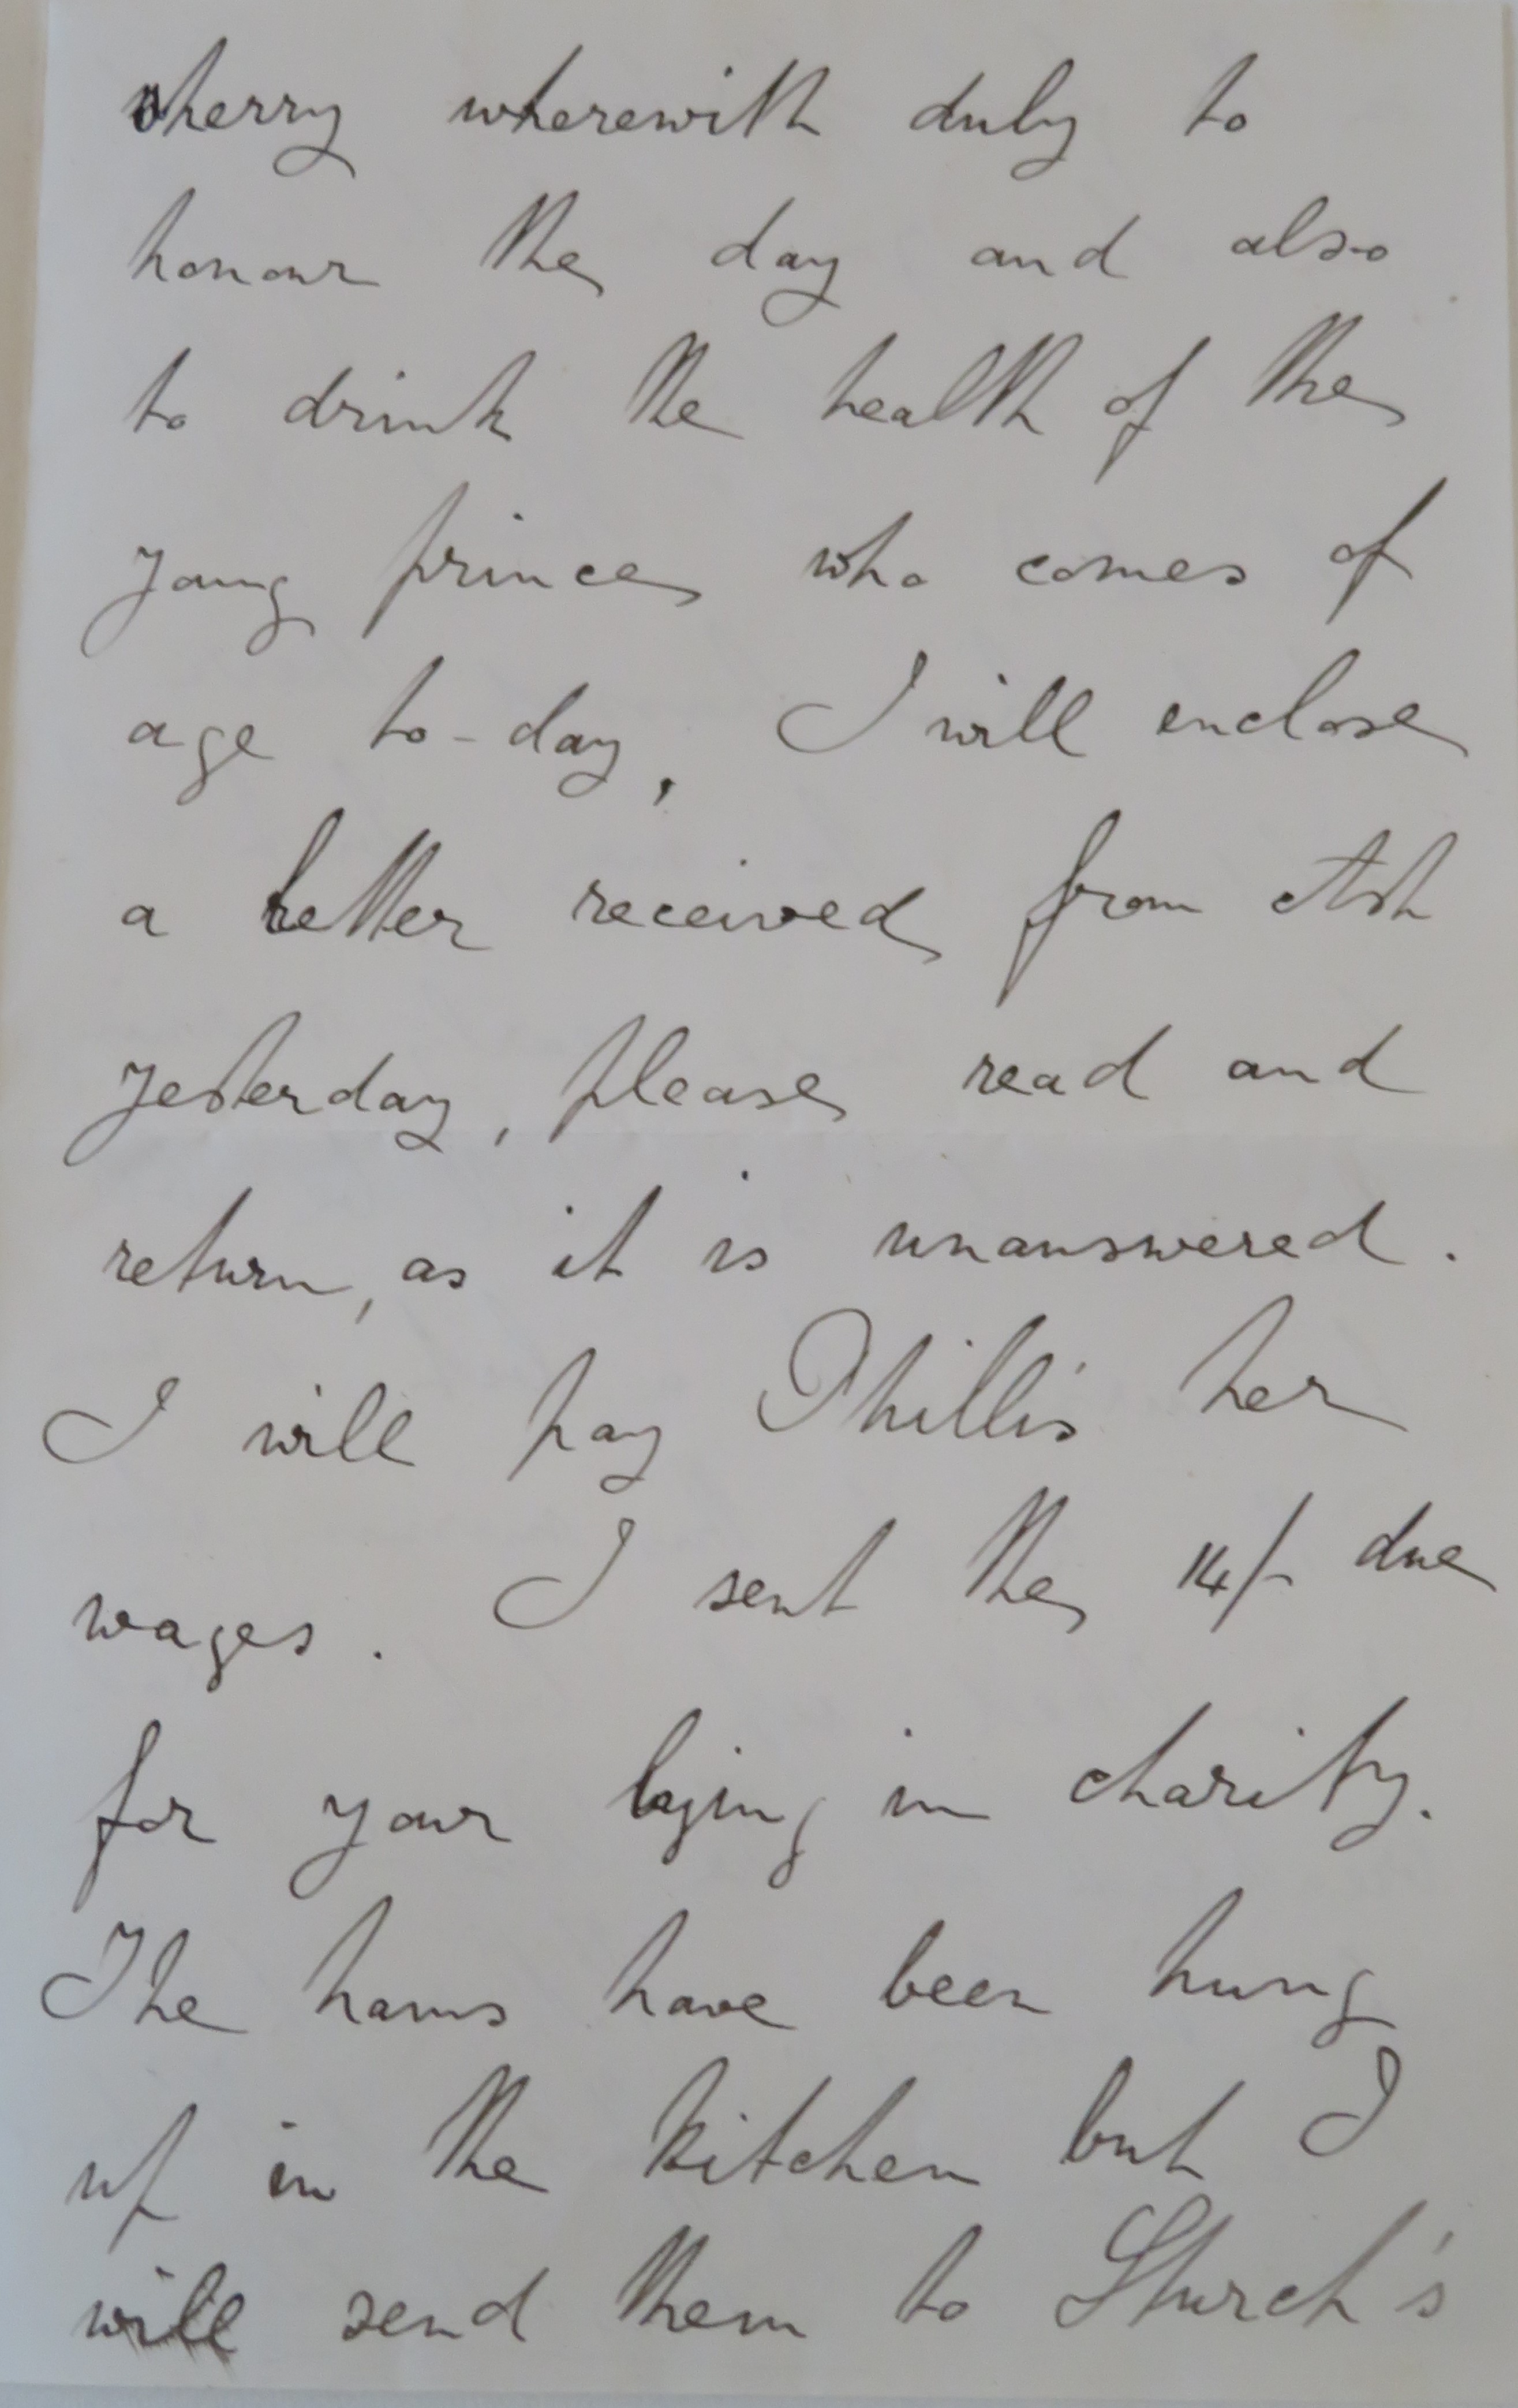 sherry wherewith duly to
honour the day and also
to drink the health of the
young prince who comes of
age to-day, I will enclose
a letter received from Ash
yesterday, please read and
return, as it is unanswered.
I will pay Phillis her
wages. I sent the 14/- due
for your lying in charity.
The hams have been hung
up in the kitchen but I
will send them to Sturch's